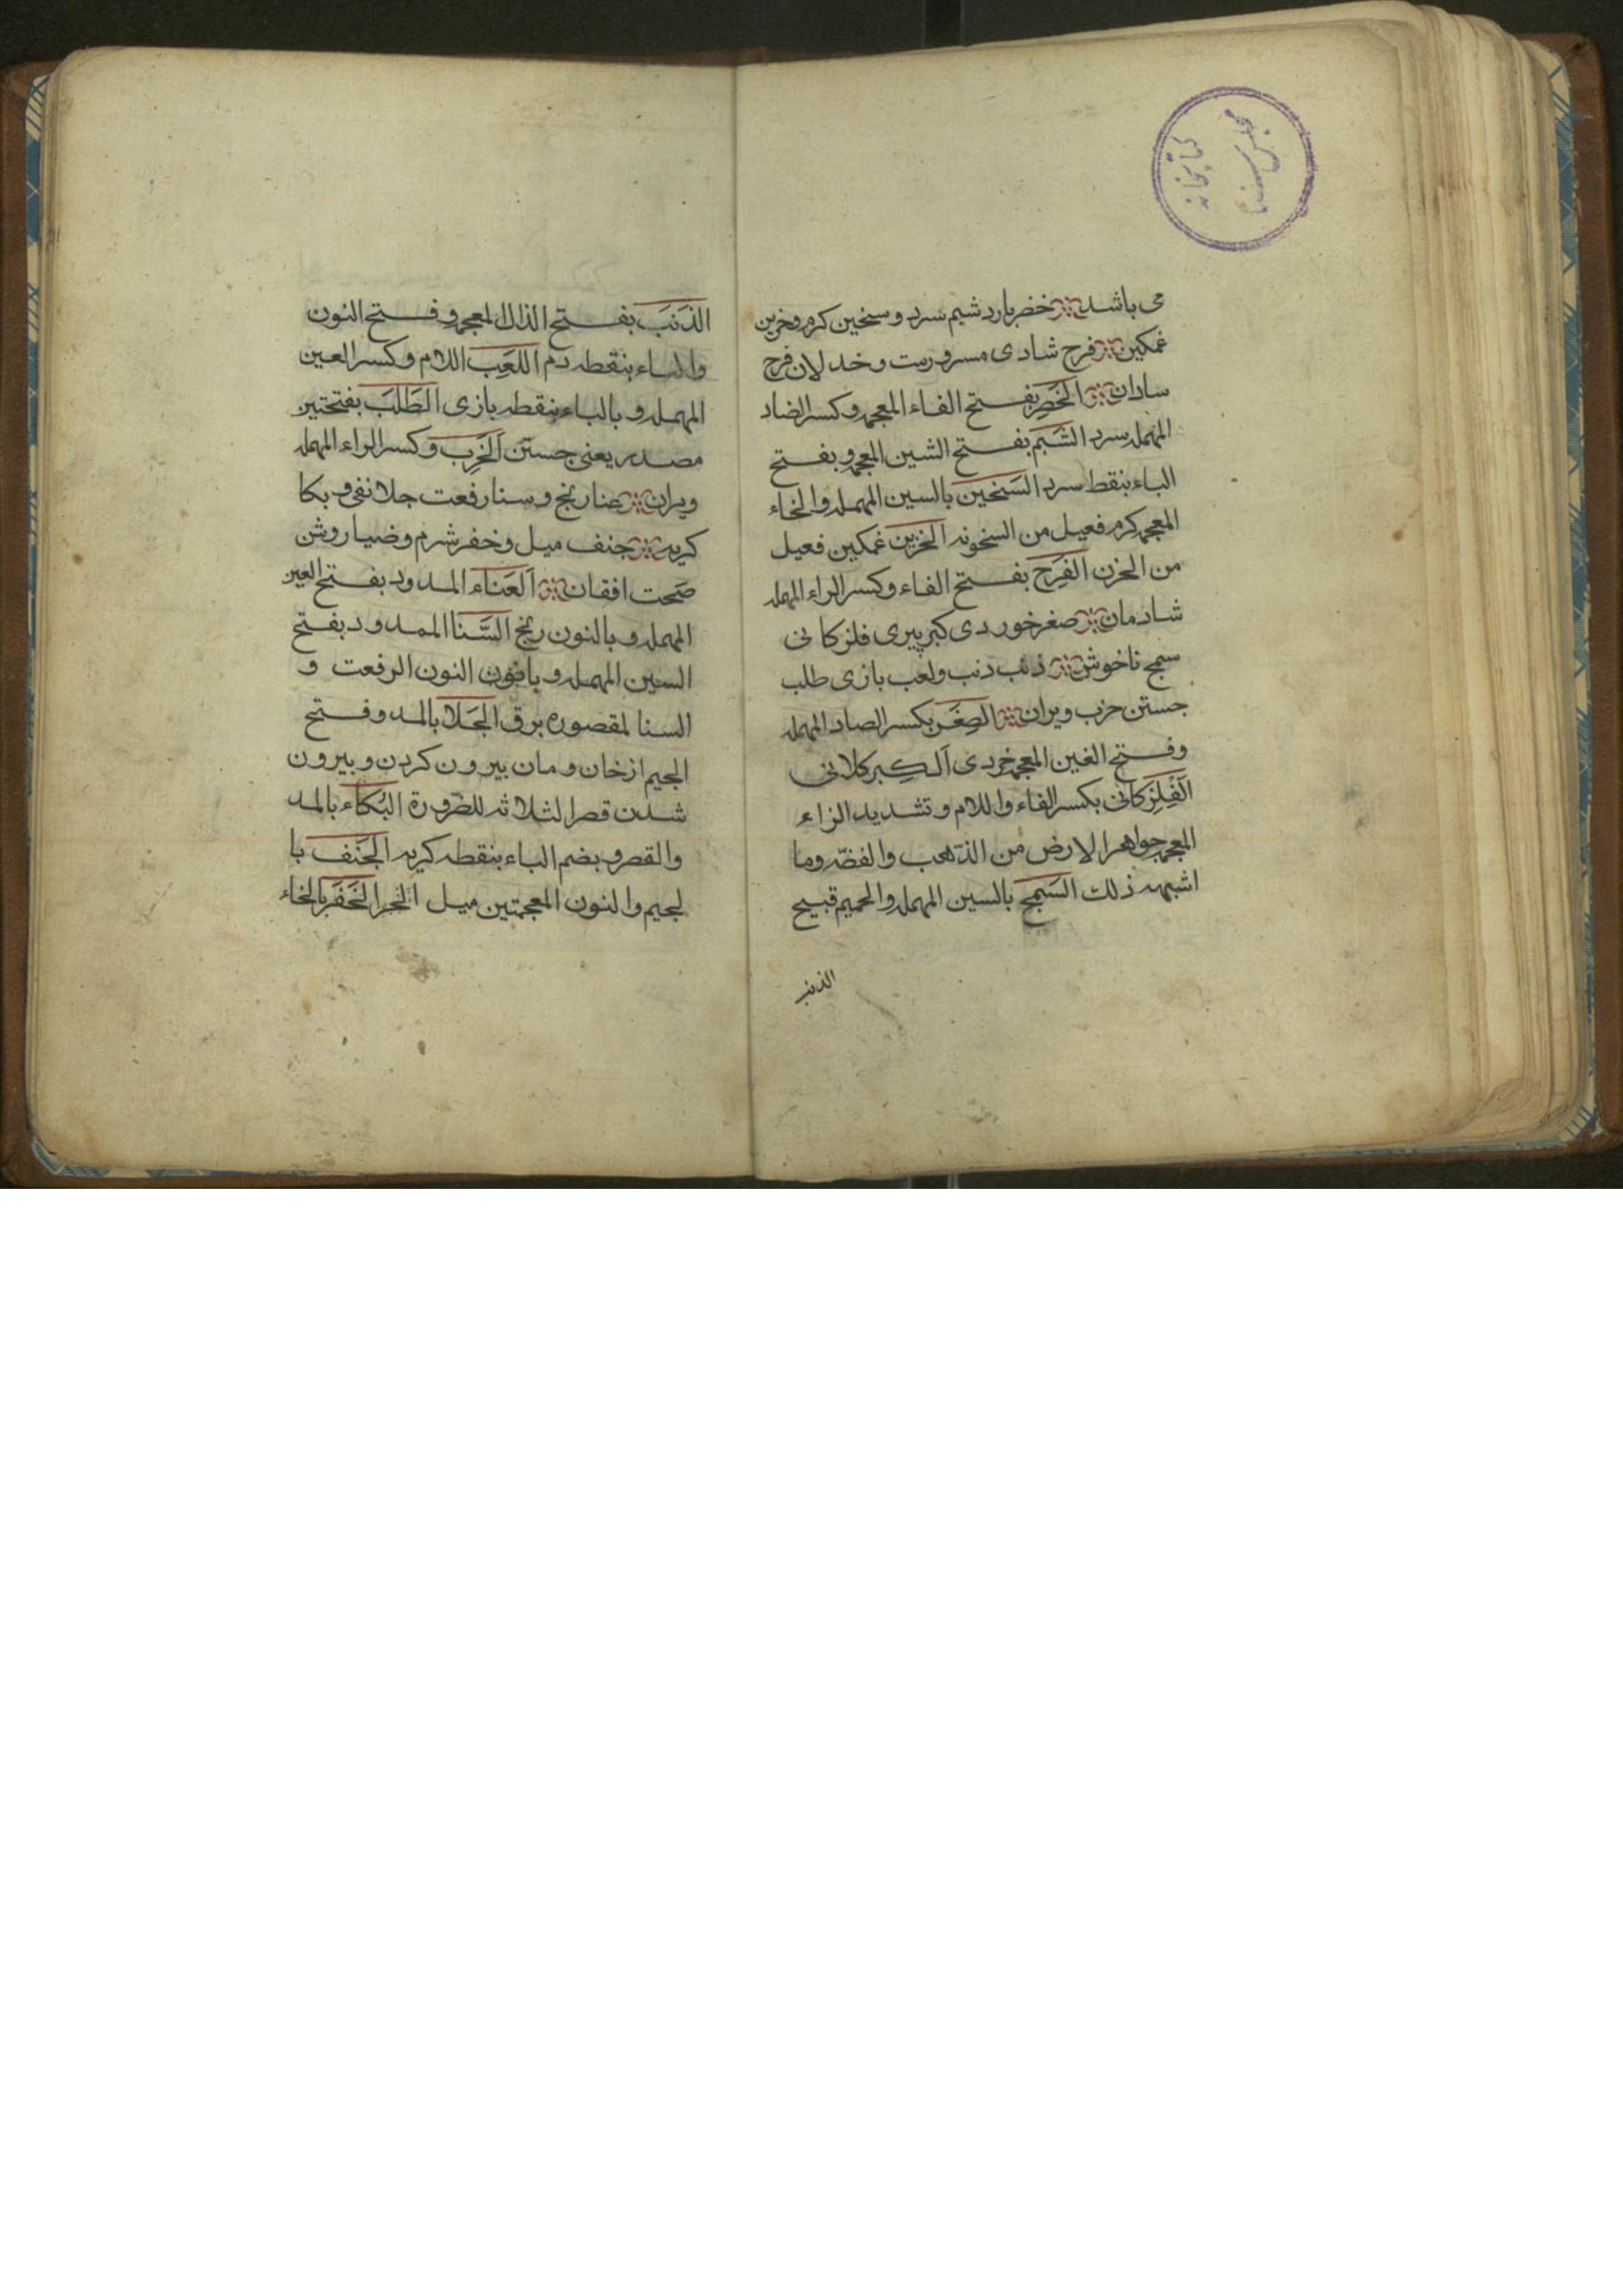 می باشد خضر بارد شبم سرد و سخین کرم و حزین
غمکین فرح شادی مسرورست و خدلان فرح
سادان الخَصِر بفتح الفاء المعجمه و کسر الضاد
المهمله سرد الشَبَم بفتح الشین المعجمه و بفتح
الباء بنقط سرد السَخین بالسین المهمله والخاء
المعجمه کرم فعیل من السخونه الخزین غمکین فعیل
من الحزن الفَرِح بفتح الفاء و کسر الراء المهمله
شادمان صغر خوردی کبر پیری فلز کانی
سمج ناخوش ذنب دنب ولعب بازی طلب
جستن حزب ویران الصِغَر بکسر الصاد المهمله
وفتح الغین المعجمه خردی اَلکِبر کلانی
اَلفِلِز کانی بکسر الفاء واللام و تشدید الزاء
المعجمه جواهر الارض من الذّهب والفضّه وما
اشبهه ذلک السَمِج بالسین المهمله والجمیم قبیح
الذنب
الذَنَبَ بفتح الذال المعجمه و فتح النون
والباء بنقطه دم اللَعِب اللام وکسر العین
المهمله و بالباء بنقطه بازی الطَلَبَ بفتحتین
مصدر یعنی جستن اَلخَرِب و کسر الراء المهمله
ویران عنا رنج و سنا رفعت جلا نفی و بکا
کریه جنف میل و خفر شرم و ضیا روشن
صحت افقان اَلعَناء المدود بفتح العین
المهمله و بالنون رنج السَّنا الممدود بفتح
السین المهمله و بافون النون الرفعت و
السنا لمقصوره برق الجَلا بالمد و فتح
الجیم از خان و مان بیرون کردن و بیرون
شدن قصر الثلاثه للضّرورة البُکاء بالمد
والقصر و بضم الباء بنقطه کریه الجَنَف با
لجیم والنون المعجمتین میل الخَفَر بالخاء